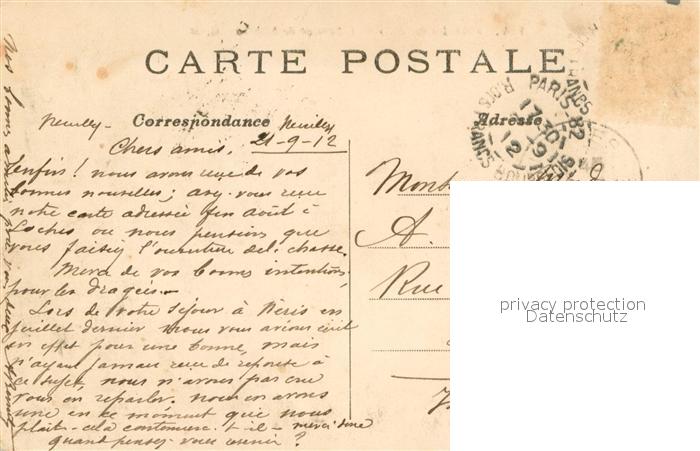 CARTE POSTALE
Correspondance
Adresse
Neuilly - Neuilly
21-9-12
Chers amis,
enfin! nous avons reçu de vos
bonnes nouvelles; avez-vous reçu
notre carte adressée fin août à
Loches ou nous pensions que
vous faisiez l'ouverture de la chasse.
Merci de vos bonnes intentions
pour les dragées.
Lors de votre séjour à Néris en
juillet dernier nous vous avions écrit
en effet pour une bonne, mais
n'ayant jamais reçu de réponse à
ce sujet, nous n'avons pas cru
vous en reparler. nous en avons
une en ce moment qui nous
plait - cela continuera-t-il - merci
quand pensez-vous venir?
Nos bonnes
PARIS 82
A.
Rue
privacy protection
Datenschutz